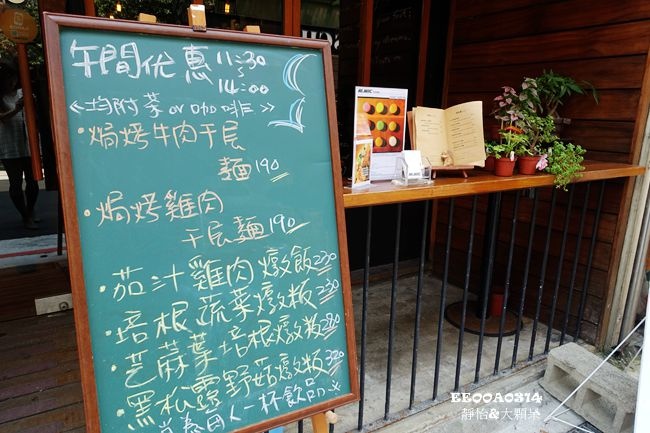 午間优惠 11:30
14:00
<均附茶 or 咖啡>>
·焗烤牛肉千层
麵190
·焗烤雞肉
千层麵190
·茄汁雞肉燉飯230
·培根蔬菜燉飯230
·芝麻葉培根燉飯280
·黑松露野菇燉飯320
人一杯飲品
EEOOA0314
靜怡&大顆呆